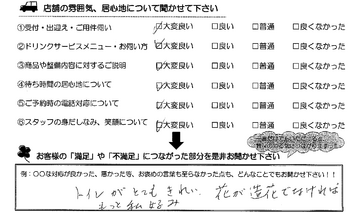 店舗の雰囲気、居心地について聞かせて下さい
①受付・出迎え・ご用件伺い ☑大変良い □良い □普通 □良くなかった
②ドリンクサービスメニュー・お伺い方 ☑大変良い □良い □普通 □良くなかった
③商品や整備内容に対するご説明 ☑大変良い □良い □普通 □良くなかった
④待ち時間の居心地について ☑大変良い □良い □普通 □良くなかった
⑤ご予約時の電話対応について ☑大変良い □良い □普通 □良くなかった
⑥スタッフの身だしなみ、笑顔について ☑大変良い □良い □普通 □良くなかった
お客様の「満足」や「不満足」につながった部分を是非お聞かせ下さい
例:〇〇な対応が良かった、悪かった等、お褒めの言葉も至らなかった点も、どんなことでもお聞かせ下さい!!
トイレがとてもきれい。花が造花でなければ
もっと私好み